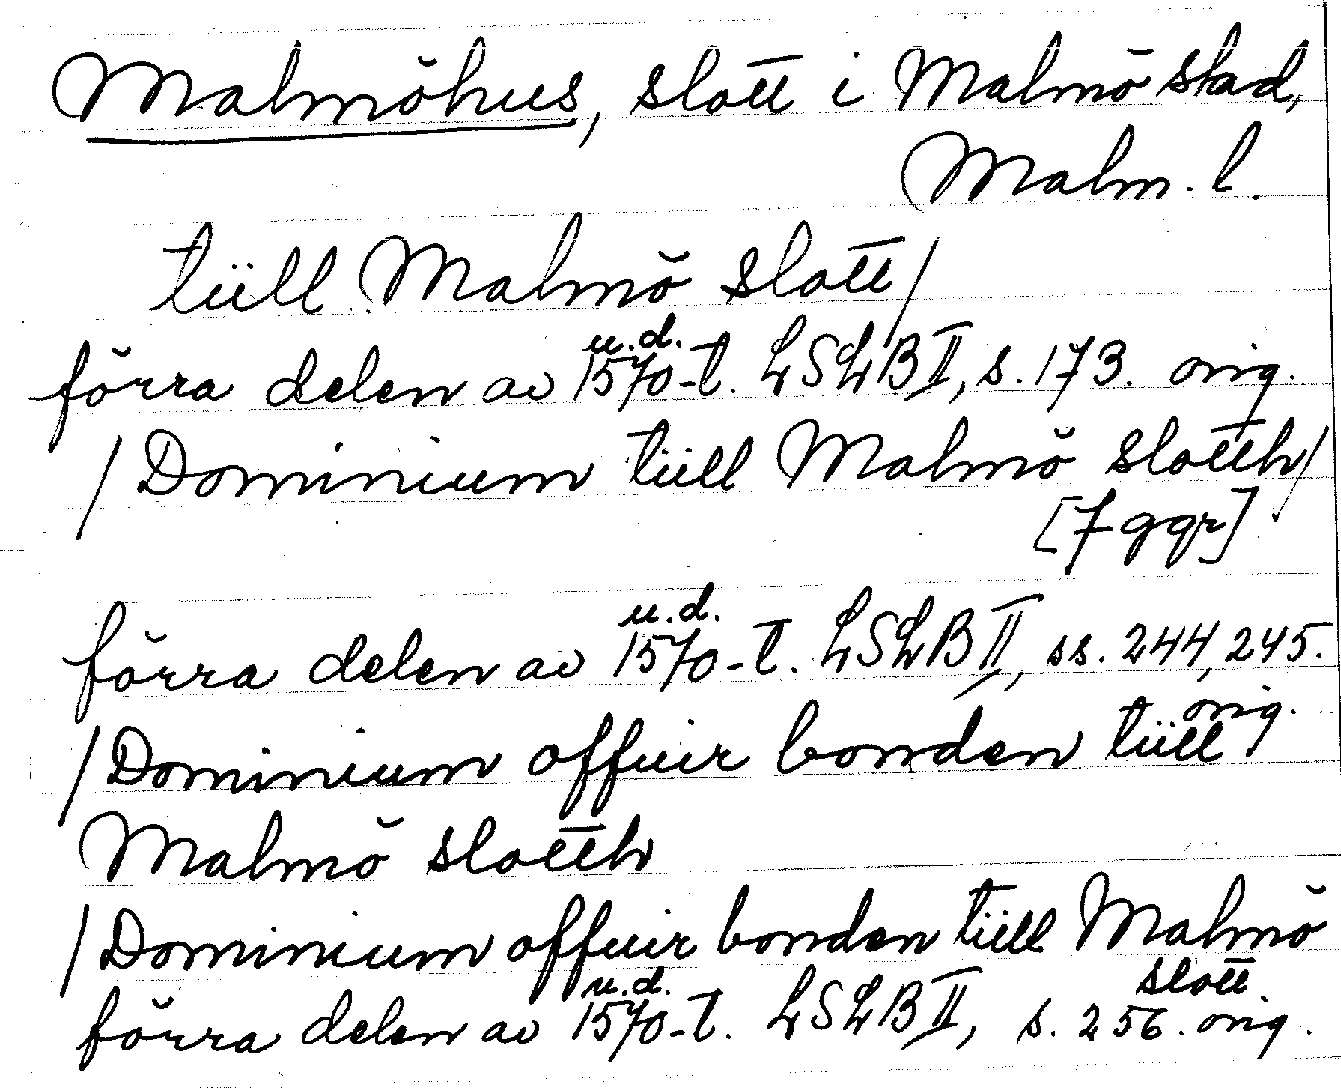 Malmöhus, slott i Malmö stad,
Malm. l.
tiill Malmö slott/
u.d.
förra delen av 1570-t. LSLB II, s. 173. orig.
/Dominium tiill Malmö slotth/
[7 ggr]
u.d.
förra delen av 1570-t. LSLB II, ss. 244, 245.
orig.
/Dominium offuir bonden tiill
Malmö slotth
/Dominium offuir bonden tiill Malmö
slott.
u.d.
förra delen av 1570-t. LSLB II, s. 256. orig.